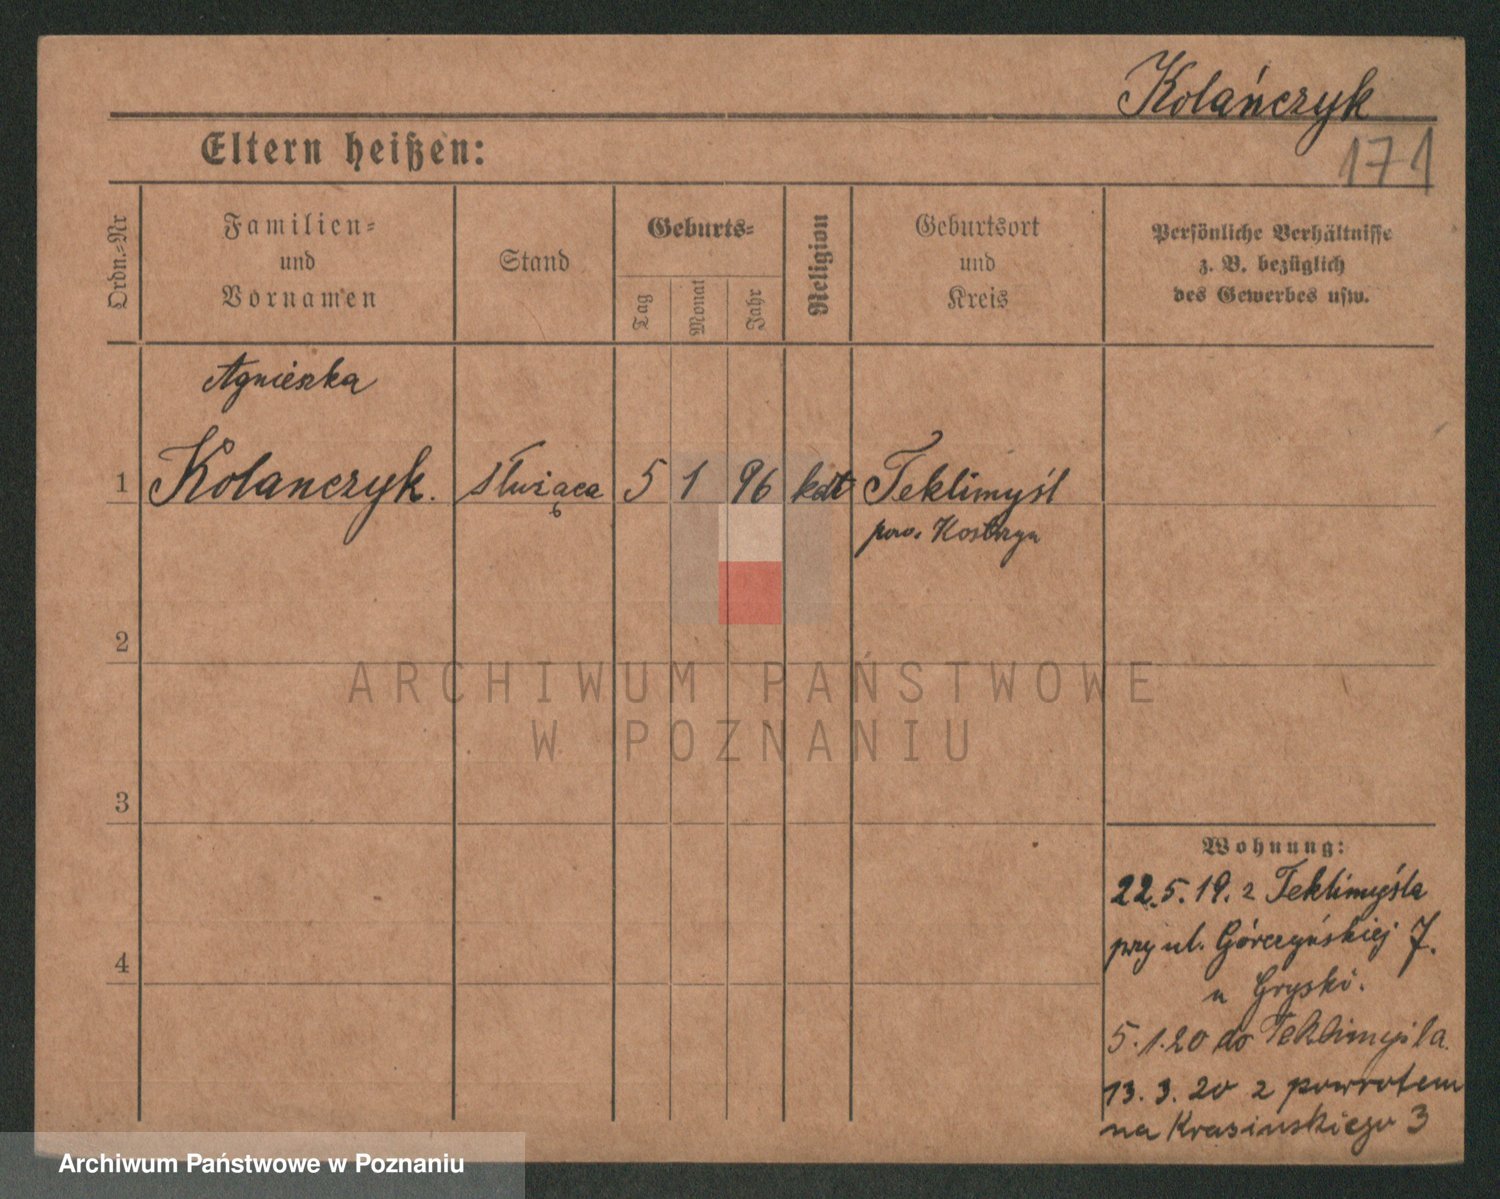 Kolańczyk
171
Eltern heißen:
Ordn.-Nr
Familien-
und
Vornamen
Stand
Geburts-
Tag
Monat
Jahr
Religion
Geburtsort
und
Kreis
Persönliche Verhältnisse
z. B. bezüglich
des Gewerbes usw.
Agnieszka
1 Kolanczyk. Służąca 5 1 96 kat Teklimyśl
pow. Kostrzyn
2
3
4
Wohnung:
22.5.19. z Teklimyśla
przy ul. Górczyńskiej 7.
u Grysko.
5.1.20 do Teklimyśla
13.3.20 z powrotem
na Krasińskiego 3
ARCHIWUM PAŃSTWOWE
W POZNANIU
Archiwum Państwowe w Poznaniu